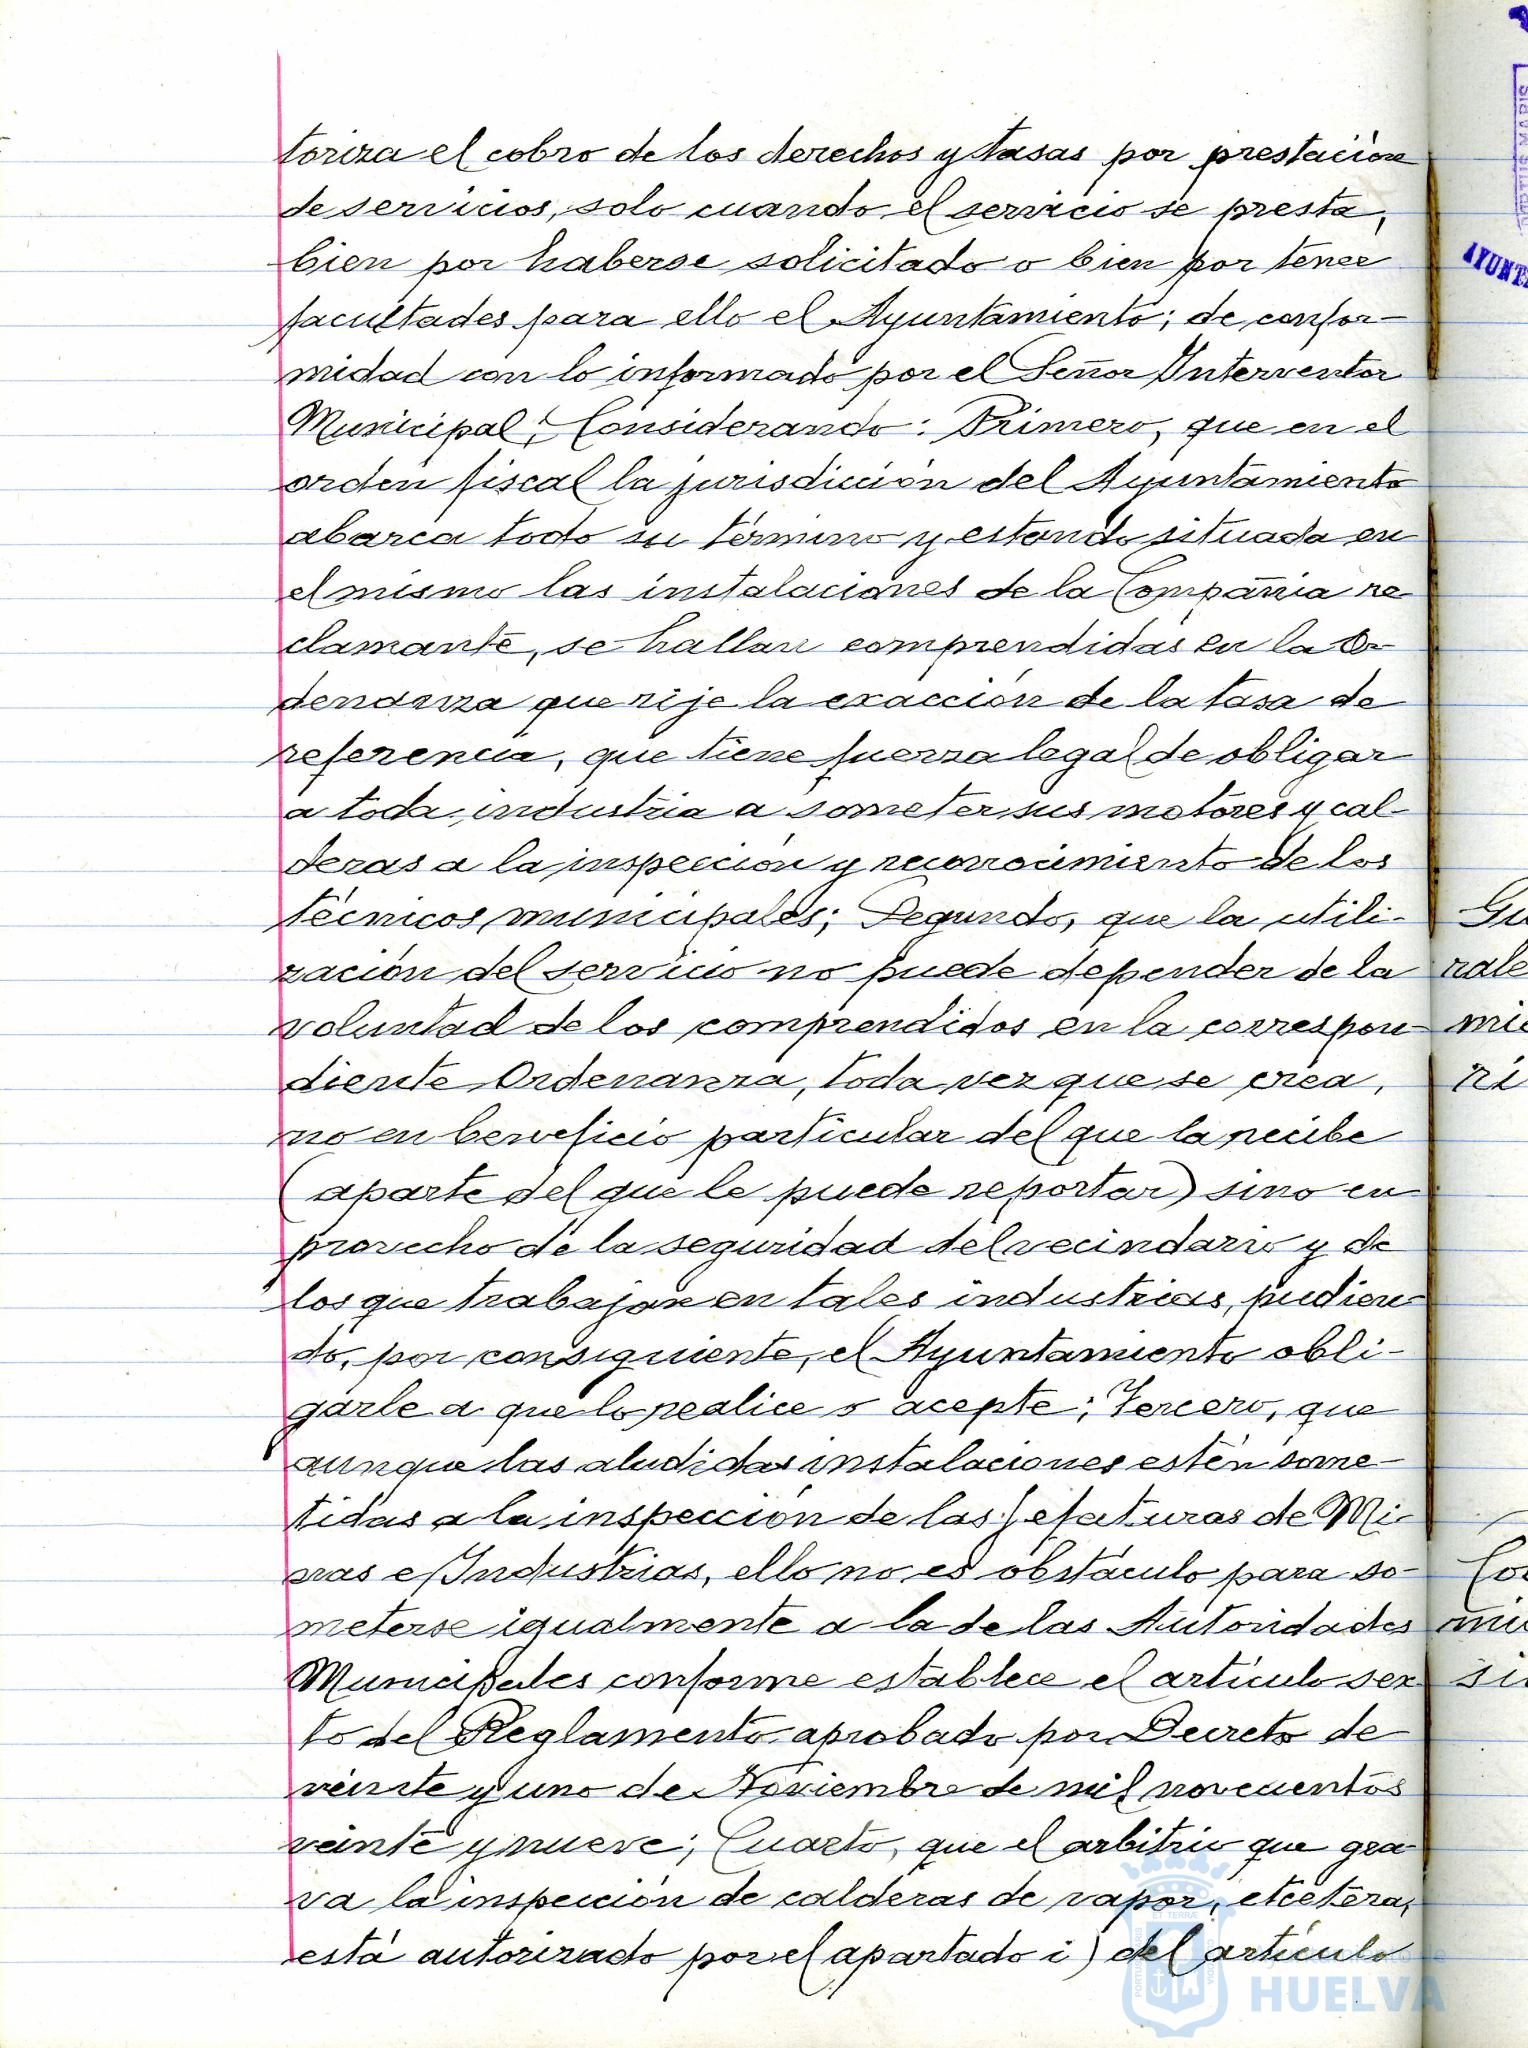 toriza el cobro de los derechos y tasas por prestación
de servicios, solo cuando el servicio se presta,
bien por haberse solicitado o bien por tener
facultades para ello el Ayuntamiento; de confor-
midad con lo informado por el Señor Interventor
Municipal; Considerando: Primero, que en el
orden fiscal la jurisdicción del Ayuntamiento
abarca todo su término y estando situada en
el mismo las instalaciones de la Compañia re
clamante, se hallan comprendidas en la Or
denanza que rije la exacción de la tasa de
referencia, que tiene fuerza legal de obligar
a toda industria a someter sus motores y cal-
deras a la inspección y reconocimiento de los
técnicos municipales; Segundo, que la utili-
zación del servicio no puede depender de la
voluntad de los comprendidos en la correspon-
diente Ordenanza, toda vez que se crea,
no en beneficio particular del que la recibe
(aparte del que le puede reportar) sino en
provecho de la seguridad del vecindario y de
los que trabajan en tales industrias, pudien-
do, por consiguiente, el Ayuntamiento obli-
garle a que lo realice o acepte; Tercero, que
aunque las aludidas instalaciones estén some-
tidas a la inspección de las Jefaturas de Mi-
nas e Industrias, ello no es obstáculo para so-
meterse igualmente a la de las Autoridades
Municipales conforme establece el artículo sex
to del Reglamento aprobado por Decreto de
veinte y uno de Noviembre de mil novecientos
veinte y nueve; Cuarto, que el arbitrio que gra-
va la inspección de calderas de vapor, etcétera,
está autorizado por el apartado i) del artículo
HUELVA